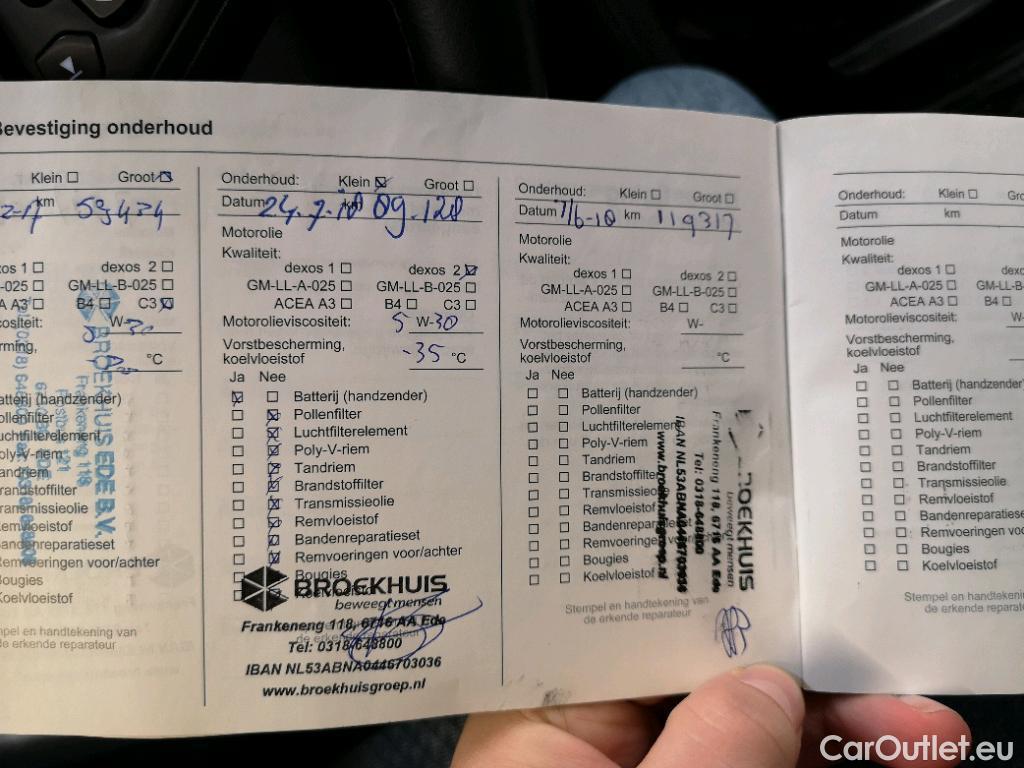 Bevestiging onderhoud
Klein Groot
2-17 km 59434
dexos 2
GM-LL-B-025
B4 C3
W-30
°C
Batterij (handzender)
Pollenfilter
Luchtfilterelement
Poly-V-riem
Tandriem
Brandstoffilter
Transmissieolie
Remvloeistof
Bandenreparatieset
Remvoeringen voor/achter
Bougies
Koelvloeistof
BROEKHUIS EDE B.V.
Frankeneng 118
Stempel en handtekening van
de erkende reparateur
Onderhoud: Klein Groot
Datum 24-7-18 km 89.128
Motorolie
Kwaliteit:
dexos 1 dexos 2
GM-LL-A-025 GM-LL-B-025
ACEA A3 B4 C3
Motorolieviscositeit: 5 W-30
Vorstbescherming,
koelvloeistof -35 °C
Ja Nee
Batterij (handzender)
Pollenfilter
Luchtfilterelement
Poly-V-riem
Tandriem
Brandstoffilter
Transmissieolie
Remvloeistof
Bandenreparatieset
Remvoeringen voor/achter
Bougies
Koelvloeistof
BROEKHUIS
beweegt mensen
Frankeneng 118, 6716 AA Ede
de erkende reparateur
Tel: 0318-648800
IBAN NL53ABNA0446703036
www.broekhuisgroep.nl
Onderhoud: Klein Groot
Datum 7/6-18 km 119317
Motorolie
Kwaliteit:
dexos 1 dexos 2
GM-LL-A-025 GM-LL-B-025
ACEA A3 B4 C3
Motorolieviscositeit: W-
Vorstbescherming,
koelvloeistof °C
Ja Nee
Batterij (handzender)
Pollenfilter
Luchtfilterelement
Poly-V-riem
Tandriem
Brandstoffilter
Transmissieolie
Remvloeistof
Bandenreparatieset
Remvoeringen
Bougies
Koelvloeistof
BROEKHUIS
beweegt mensen
Frankeneng 118, 6716 AA Ede
Tel: 0318-648800
IBAN NL53ABNA0446703036
www.broekhuisgroep.nl
Stempel en handtekening van
de erkende reparateur
Onderhoud: Klein
Datum km
Motorolie
Kwaliteit:
dexos 1
GM-LL-A-025 GM-LL-B-
ACEA A3 B4
Motorolieviscositeit: W-
Vorstbescherming,
koelvloeistof
Ja Nee
Batterij (handzender)
Pollenfilter
Luchtfilterelement
Poly-V-riem
Tandriem
Brandstoffilter
Transmissieolie
Remvloeistof
Bandenreparatieset
Remvoeringen voor
Bougies
Koelvloeistof
Stempel en handteken
de erkende reparate
CarOutlet.eu